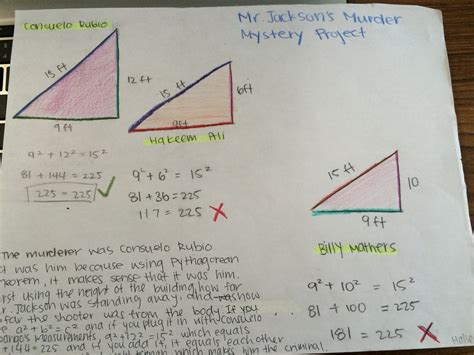 Mr. Jackson's Murder
Mystery Project
Consuelo Rubio
15 ft
12 ft
9 ft
9² + 12² = 15²
81 + 144 = 225
225 = 225 ✓
15 ft
6ft
9ft
Hakeem Ali
9² + 6² = 15²
81 + 36 = 225
117 = 225 X
15 ft
10
9 ft
Billy Mathers
9² + 10² = 15²
81 + 100 = 225
181 = 225 X
The murderer was Consuelo Rubio.
it was him because using Pythagorean
theorem, it makes sense that it was him.
First using the height of the building, how far
Mr. Jackson was standing away, and how
far the shooter was from the body. If you
a² + b² = c² and if you plug in with Consuelo
measurements, 9² + 12² = 15² which equals
144 = 225 and if you add it, it equals each other
which makes him the criminal